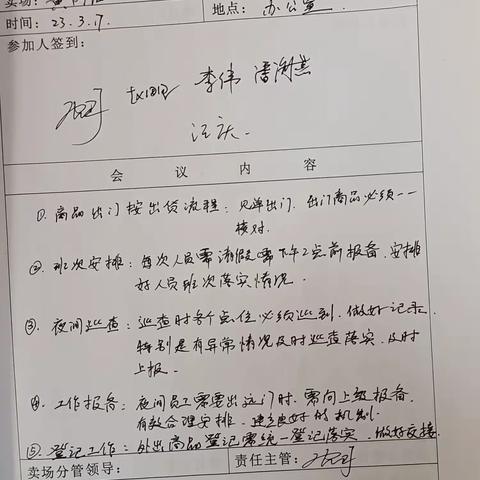 卖场：
时间：23.3.17. 地点：办公室.
参加人签到：
李伟 潘渊燕
汪庆.
会议内容
①. 商品出门按出货流程：见单出门. 出门商品必须一一
核对.
②. 班次安排：每次人员需请假需下午2点前报备. 安排
好人员班次落实情况.
③. 夜间巡查：巡查时各个点位必须巡到. 做好记录.
特别是有异常情况及时巡查落实. 及时
上报.
④. 工作报备：夜间员工需要出远门时. 需向上级报备.
有效合理安排. 建立良好的机制.
⑤. 登记工作：外出商品登记需统一登记落实. 做好交接.
卖场分管领导： 责任主管：